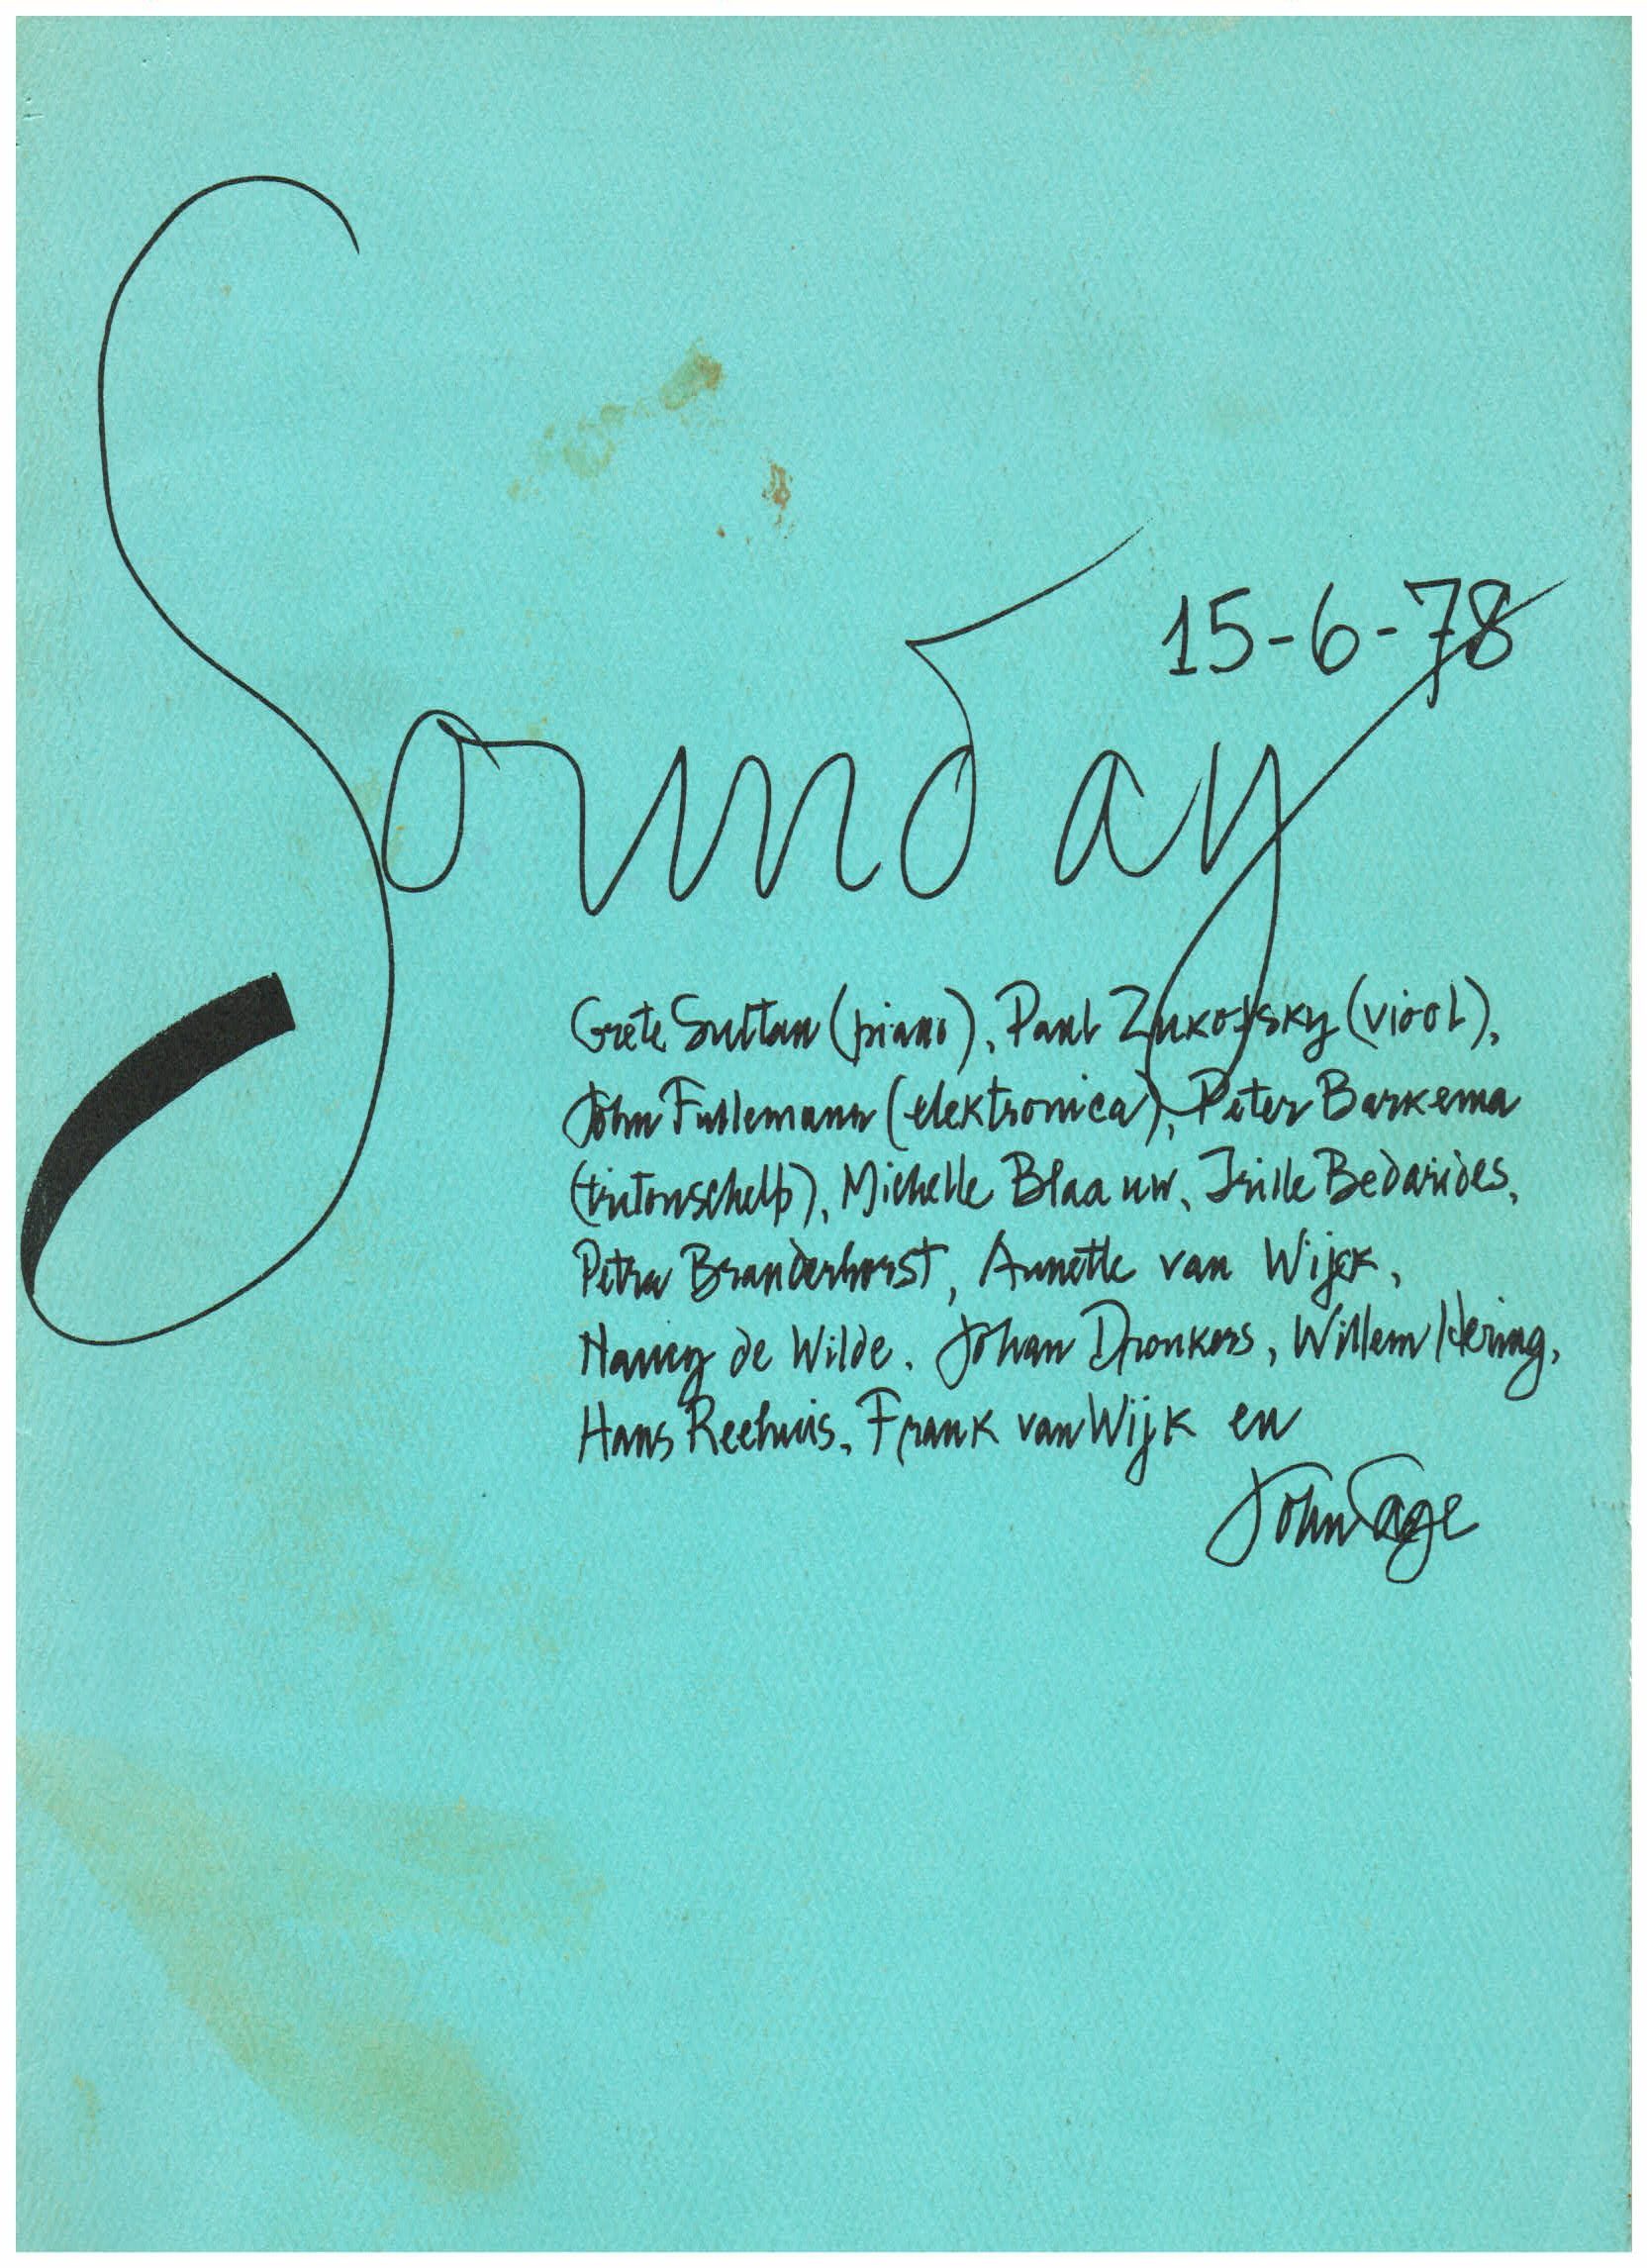 15-6-78
Sounday
Grete Sultan (piano), Paul Zukofsky (viool),
John Fullemann (elektronica), Peter Barkema
(tritonschelp), Michelle Blaauw, Bedarides,
Petra Branderhorst, Annette van Wijck,
Nancy de Wilde, Johan Dronkers, Willem Hering,
Hans Reehuis, Frank van Wijk en
John Cage